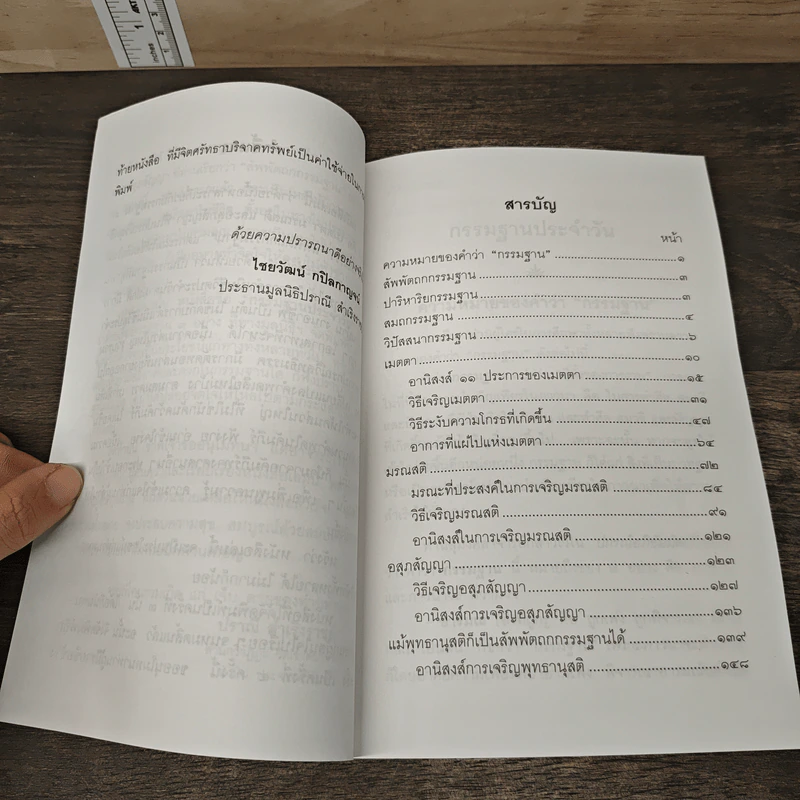 ท้ายหนังสือ ที่มีจิตศรัทธาบริจาคทรัพย์เป็นค่าใช้จ่ายใน
พิมพ์
ด้วยความปรารถนาดีอย่าง
ไชยวัฒน์ กปิลกาญจน์
ประธานมูลนิธิปราณี
สารบัญ
หน้า
ความหมายของคำว่า "กรรมฐาน" ๑
สัพพัตถกกรรมฐาน ๓
ปาริหาริยกรรมฐาน ๓
สมถกรรมฐาน ๔
วิปัสสนากรรมฐาน ๖
เมตตา ๑๐
อานิสงส์ ๑๑ ประการของเมตตา ๑๕
วิธีเจริญเมตตา ๓๑
วิธีระงับความโกรธที่เกิดขึ้น ๔๗
อาการที่แผ่ไปแห่งเมตตา ๖๔
มรณสติ ๗๒
มรณะที่ประสงค์ในการเจริญมรณสติ ๘๔
วิธีเจริญมรณสติ ๙๑
อานิสงส์ในการเจริญมรณสติ ๑๒๑
อสุภสัญญา ๑๒๓
วิธีเจริญอสุภสัญญา ๑๒๗
อานิสงส์การเจริญอสุภสัญญา ๑๓๖
แม้พุทธานุสติก็เป็นสัพพัตถกกรรมฐานได้ ๑๓๙
อานิสงส์การเจริญพุทธานุสติ ๑๔๘